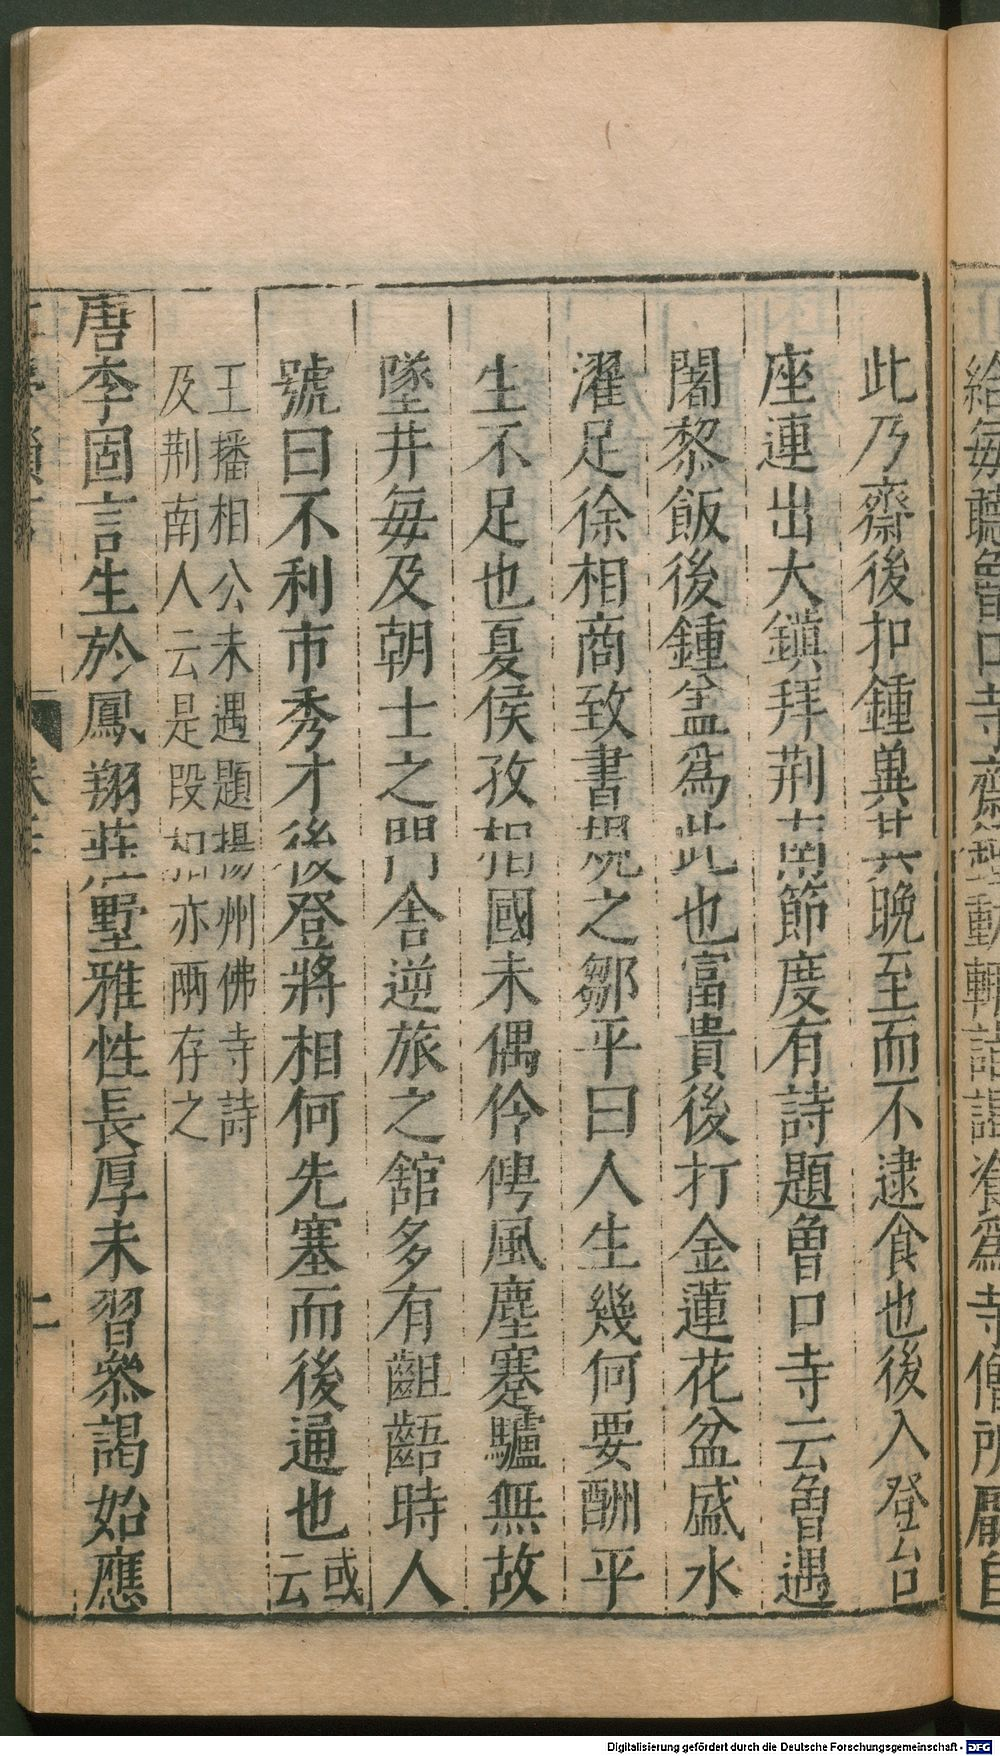 給每聽曾口寺齋鐘動輒詣謁飡爲寺僧所厭自
此乃齋後扣鍾兾其晩至而不逮食也後入登台
座連出大鎭拜荆南節度有詩題曾口寺云曾遇
闍黎飯後鍾盖爲此也富貴後打金蓮花盆盛水
濯足徐相商致書規之鄒平曰人生幾何要酬平
生不足也夏侯孜相國未偶伶俜風塵蹇驢無故
墜井每及朝士之門舍逆旅之舘多有齟齬時人
號曰不利市秀才後登將相何先塞而後通也或云
王播相公未遇題揚州佛寺詩
及荆南人云是段相亦兩存之
唐李固言生於鳳翔莊墅雅性長厚未習叅謁始應
卷三
二
Digitalisierung gefördert durch die Deutsche Forschungsgemeinschaft - DFG